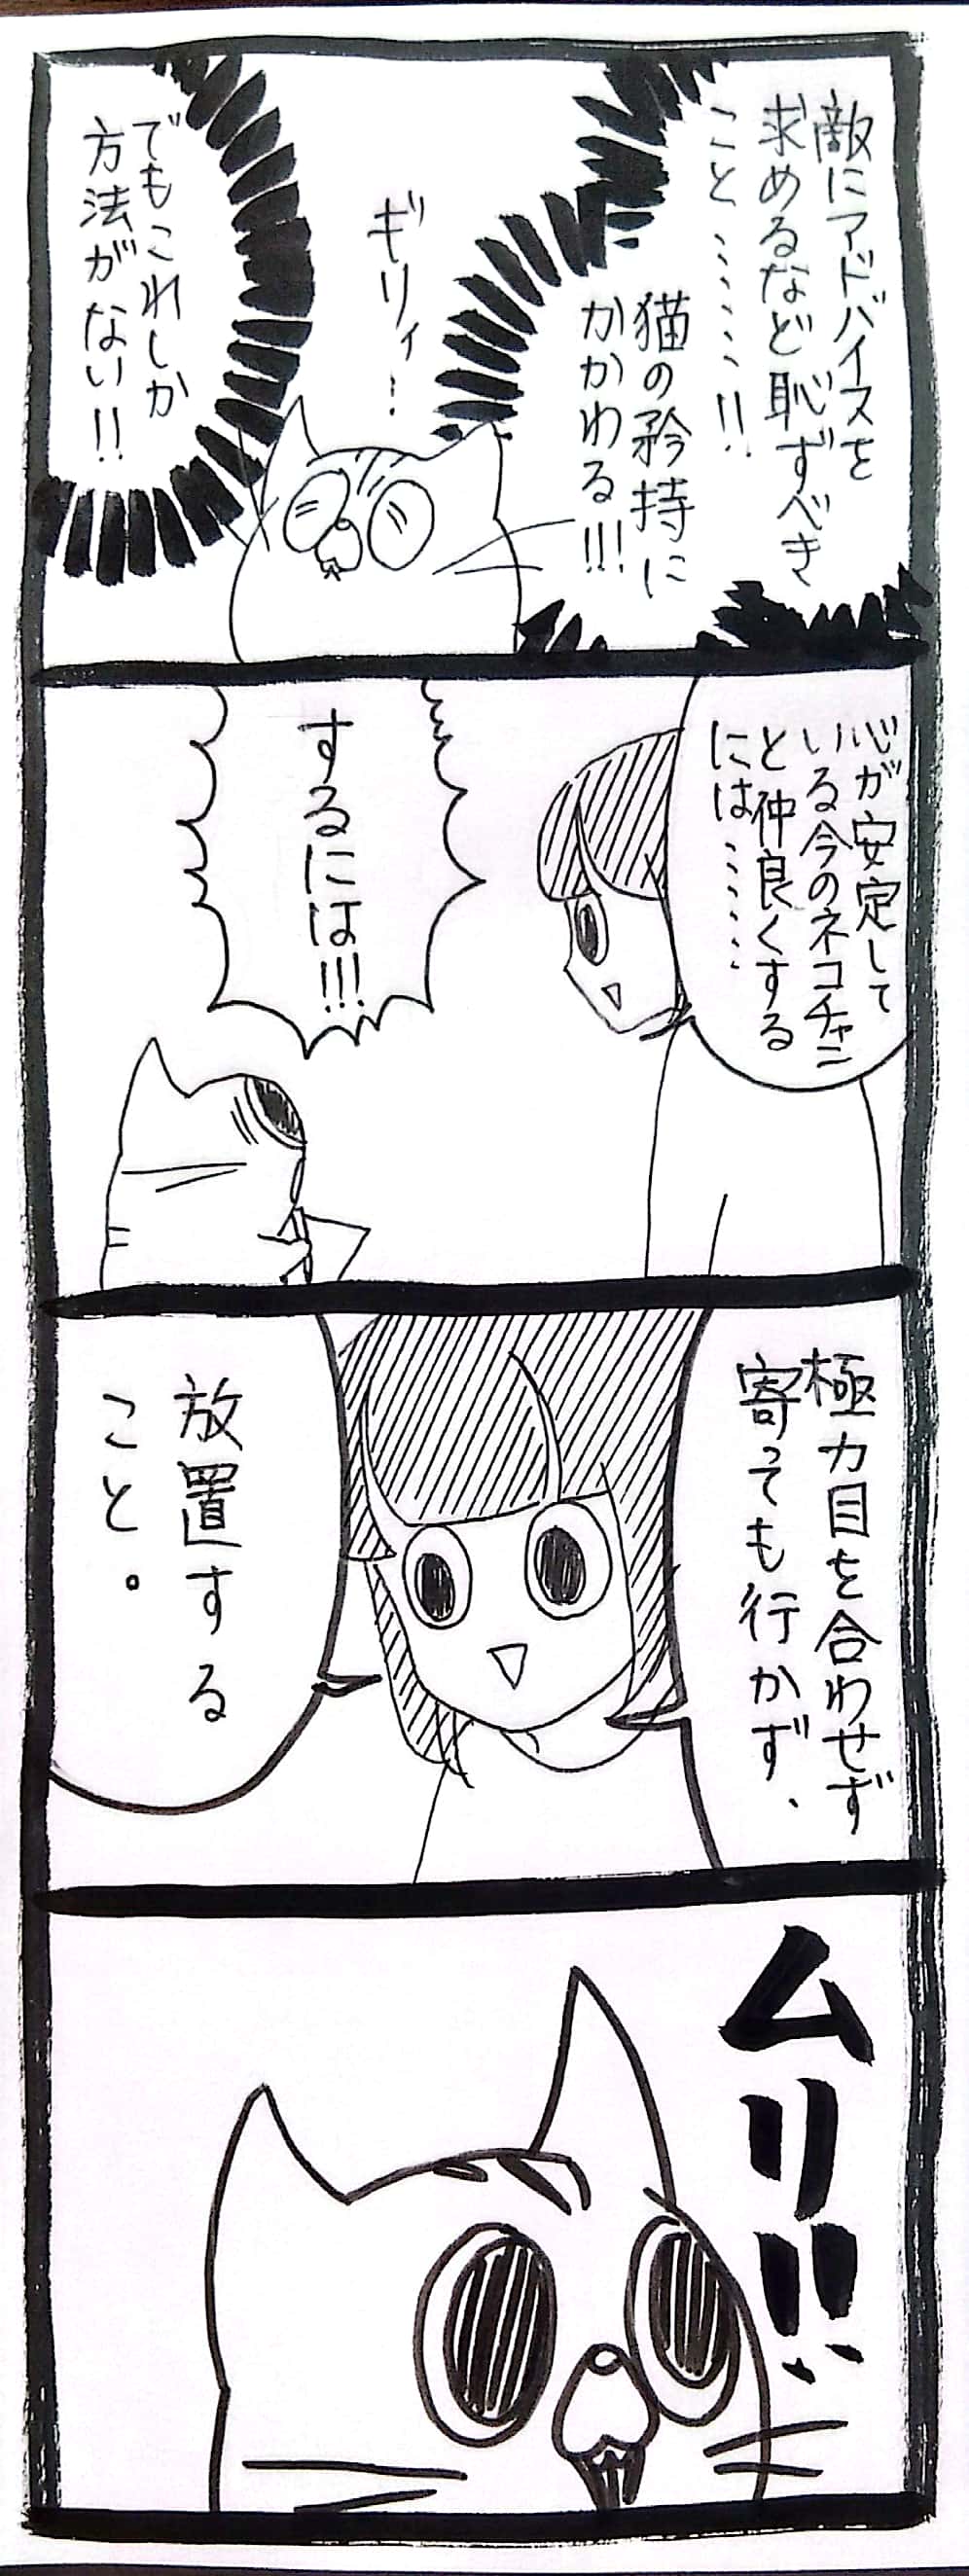 敵にアドバイスを
求めるなど恥ずべき
こと、……!!
猫の矜持に
かかわる!!!
ギリィ…
でもこれしか
方法がない!!
心が安定して
いる今のネコチャン
と仲良くする
には……
するには!!!
極力目を合わせず
寄っても行かず、
放置する
こと。
ムリ!!